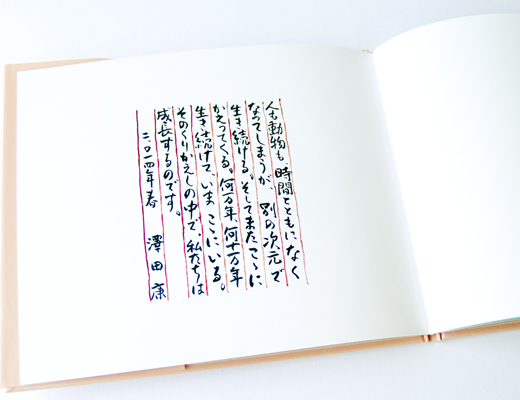 人も動物も時間とともになく
なってしまうが、別の次元で
生き続ける。そしてまたここに
かえってくる。何万年何十万年
生き続けて、いまここにいる。
そのくりかえしの中で、私たちは
成長するのです。
二〇一四年春 澤田康